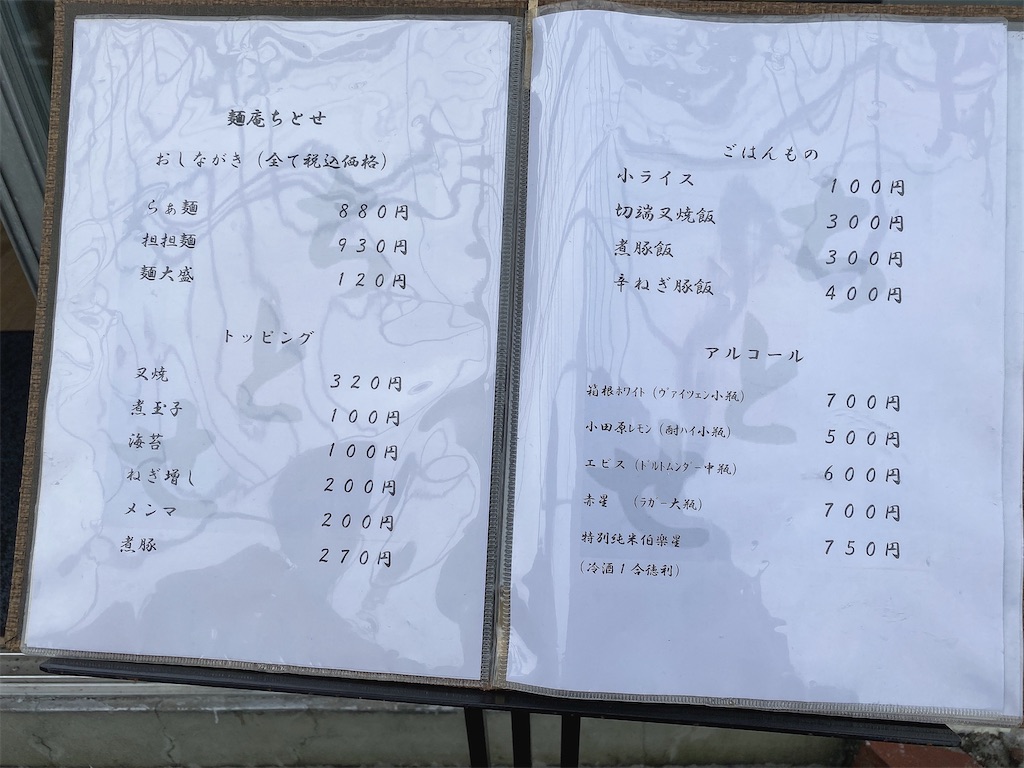 麺庵ちとせ
おしながき（全て税込価格）
らぁ麺 880円
担担麺 930円
麺大盛 120円
トッピング
叉焼 320円
煮玉子 100円
海苔 100円
ねぎ増し 200円
メンマ 200円
煮豚 270円
ごはんもの
小ライス 100円
切端叉焼飯 300円
煮豚飯 300円
辛ねぎ豚飯 400円
アルコール
箱根ホワイト（ヴァイツェン小瓶） 700円
小田原レモン（酎ハイ小瓶） 500円
エビス（ドルトムンダー中瓶） 600円
赤星　（ラガー大瓶） 700円
特別純米伯樂星 750円
（冷酒1合徳利）